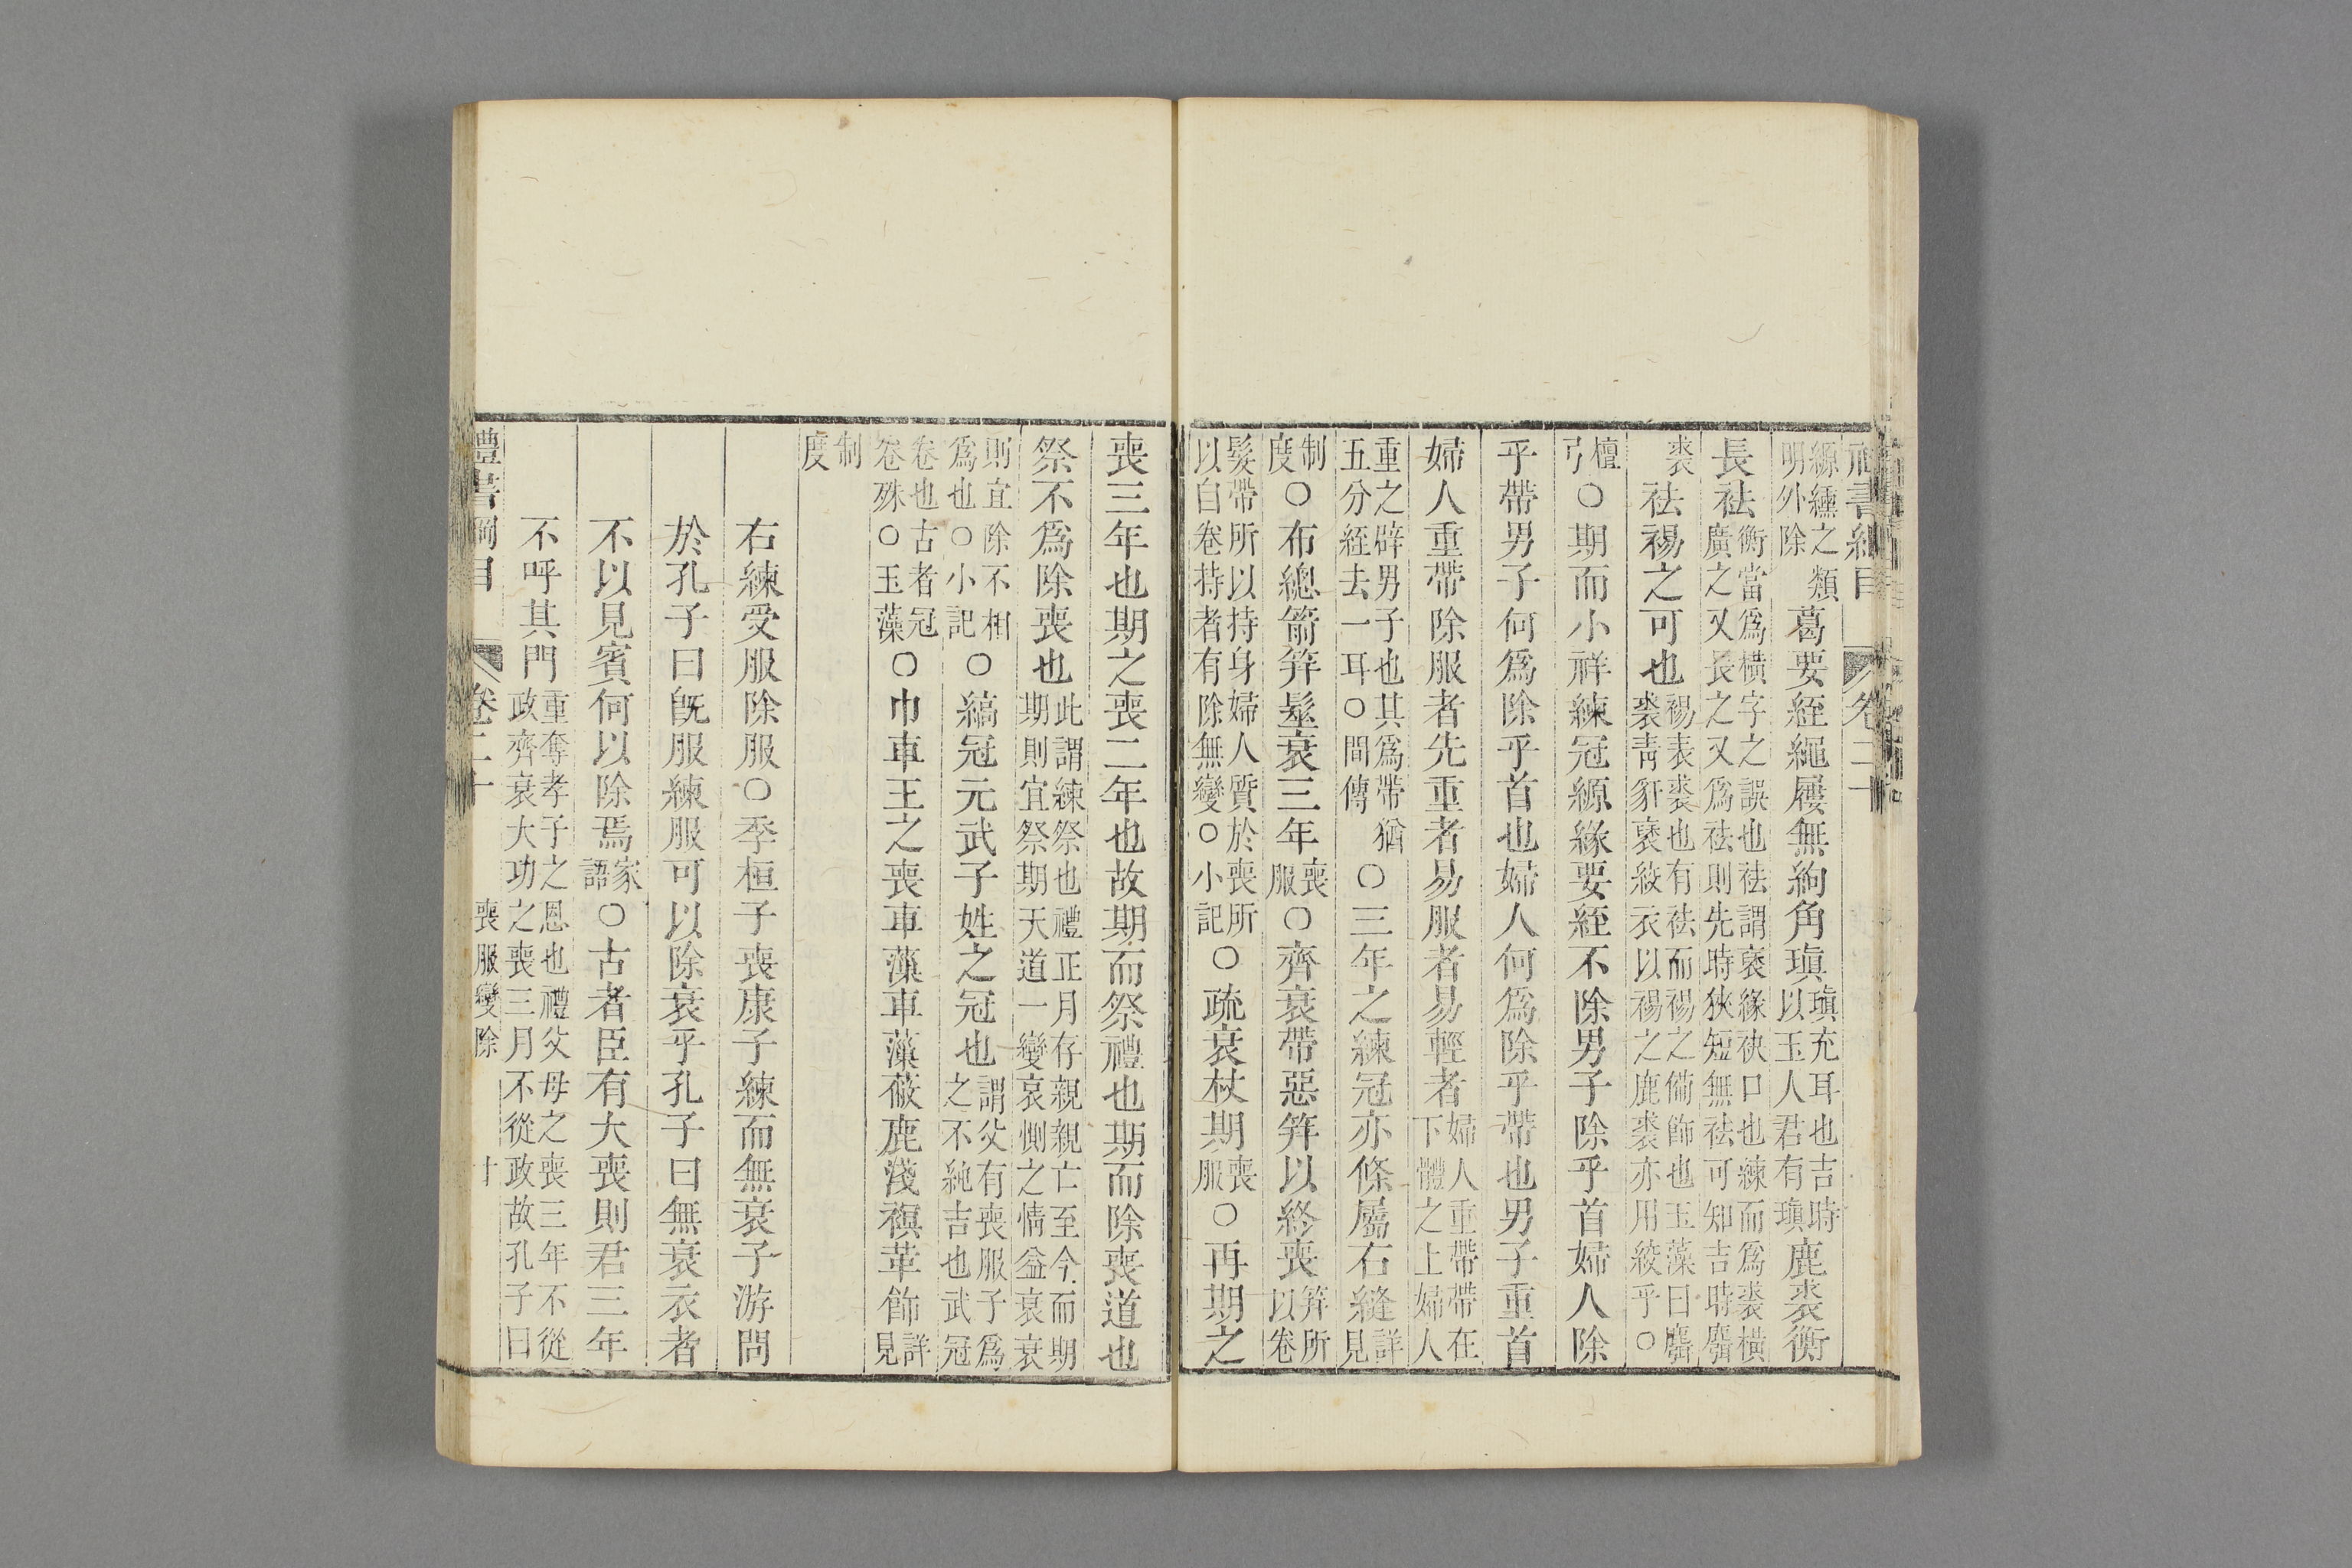 禮書綱目 卷二十
縓纁之類明外除葛要絰繩屨無絇角瑱瑱充耳也吉時以玉人君有瑱鹿裘衡
長袪衡當爲橫字之誤也袪謂褎緣袂口也練而爲裘橫廣之又長之又爲袪則先時狹短無袪可知吉時麛
裘袪裼之可也裼表裘也有袪而裼之備飾也玉藻曰麛裘靑豻褎絞衣以裼之鹿裘亦用絞乎○
檀弓○期而小祥練冠縓緣要絰不除男子除乎首婦人除
乎帶男子何爲除乎首也婦人何爲除乎帶也男子重首
婦人重帶除服者先重者易服者易輕者婦人重帶帶在下體之上婦人
重之辟男子也其爲帶猶五分絰去一耳○間傳○三年之練冠亦條屬右縫詳見
制度○布總箭筓髽衰三年喪服○齊衰帶惡筓以終喪筓所以卷
髮帶所以持身婦人質於喪所以自卷持者有除無變○小記○疏衰杖期喪服○再期之
喪三年也期之喪二年也故期而祭禮也期而除喪道也
祭不爲除喪也此謂練祭也禮正月存親親亡至今而期期則宜祭期天道一變哀惻之情益衰衰
則宜除不相爲也○小記○縞冠元武子姓之冠也謂父有喪服子爲之不純吉也武冠
卷也古者冠卷殊○玉藻○巾車王之喪車藻車藻蔽鹿淺䙰革飾詳見
制度
右練受服除服○季桓子喪康子練而無衰子游問
於孔子曰旣服練服可以除衰乎孔子曰無衰衣者
不以見賓何以除焉家語○古者臣有大喪則君三年
不呼其門重奪孝子之恩也禮父母之喪三年不從政齊衰大功之喪三月不從政故孔子曰
禮書綱目 卷二十 喪服變除 廿